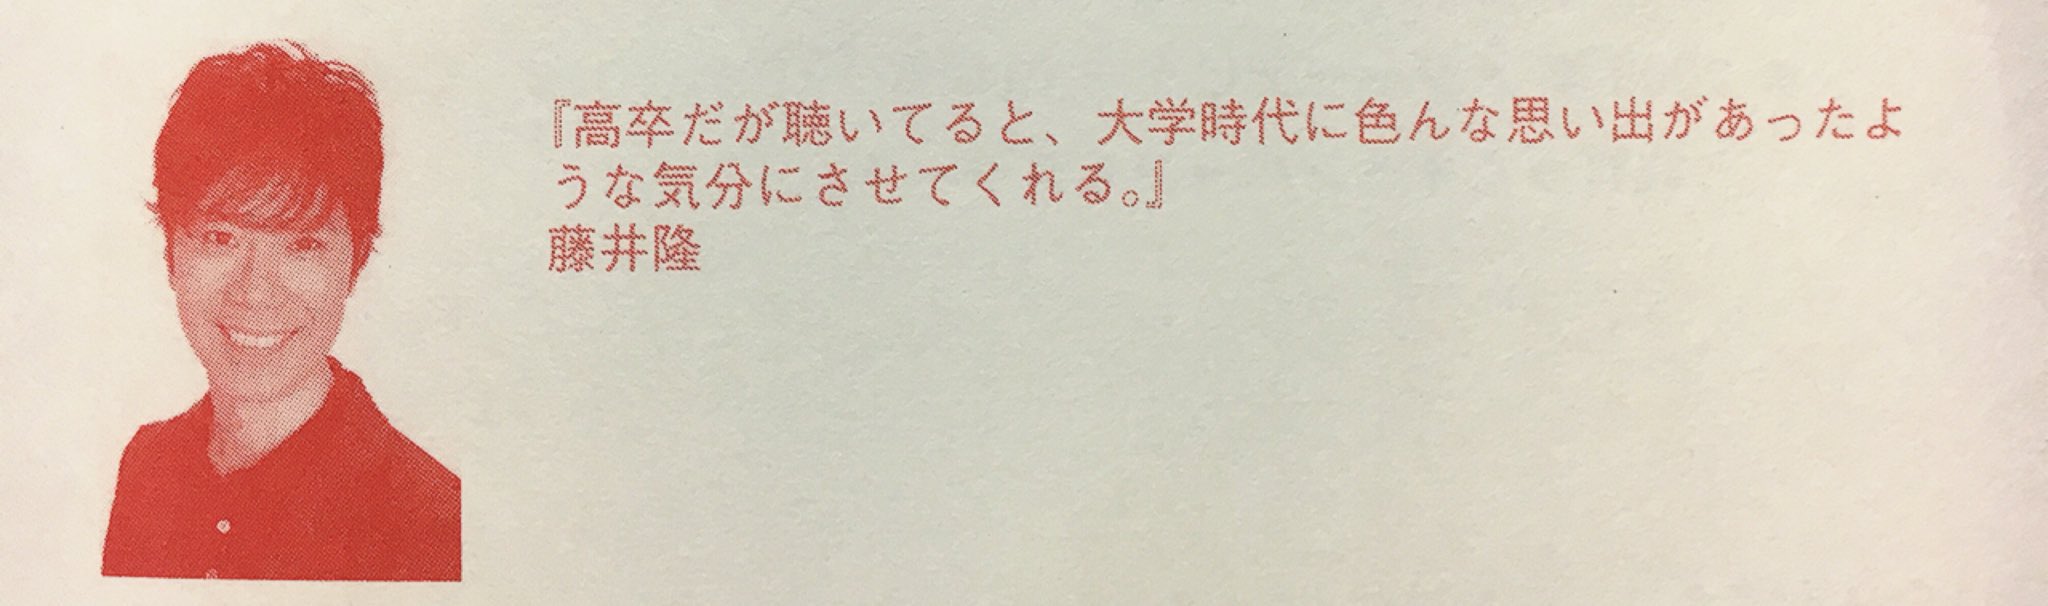 『高卒だが聴いてると、大学時代に色んな思い出があったよ
うな気分にさせてくれる。』
藤井隆